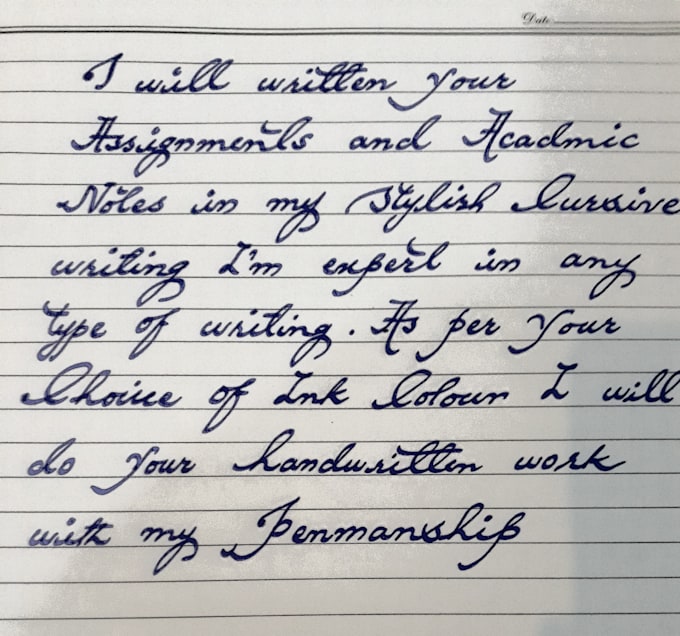 Date
I will written your
Assignments and Acadmic
Notes in my Stylish Cursive
writing I'm expert in any
type of writing. As per Your
Choice of Ink Colour I will
do Your handwritten work
with my Penmanship